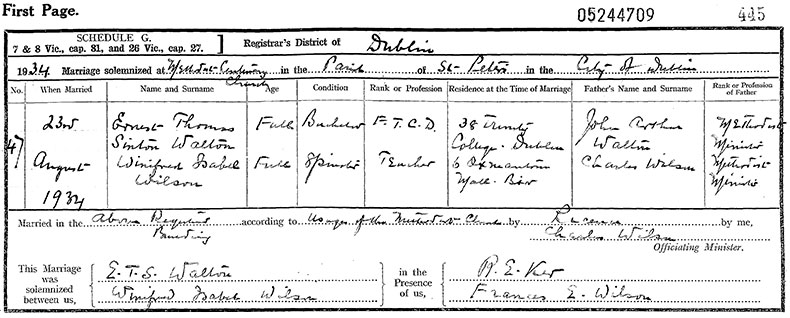 First Page.
05244709 445
SCHEDULE G.
7 & 8 Vic., cap. 81, and 26 Vic., cap. 27.
Registrar's District of Dublin
1934. Marriage solemnized at Methodist Centenary Church in the Parish of St. Peter in the City of Dublin
No. When Married Name and Surname Age Condition Rank or Profession Residence at the Time of Marriage Father's Name and Surname Rank or Profession of Father
47
23rd August 1934
Ernest Thomas Sinton Walton Full Bachelor F.T.C.D. 38 Trinity College Dublin John Arthur Walton Methodist Minister
Winifred Isabel Wilson Full Spinster Teacher 6 Oxmantown Mall. Birr Charles Wilson Methodist Minister
Married in the above Registered Building according to Usages of the Methodist Church by Licence by me,
Charles Wilson
Officiating Minister.
This Marriage was solemnized between us,
E.T.S. Walton
Winifred Isabel Wilson
in the Presence of us,
R. E. Ker
Frances E. Wilson